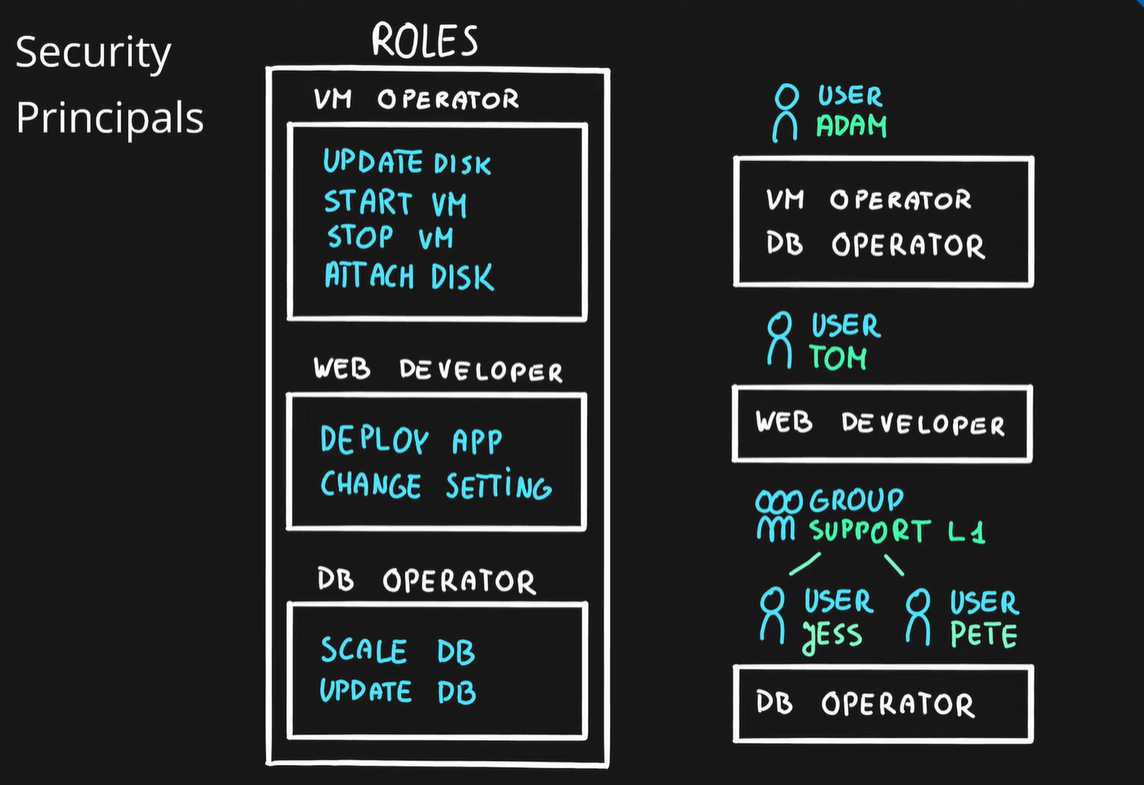 Security
Principals
ROLES
VM OPERATOR
UPDATE DISK
START VM
STOP VM
ATTACH DISK
WEB DEVELOPER
DEPLOY APP
CHANGE SETTING
DB OPERATOR
SCALE DB
UPDATE DB
USER
ADAM
VM OPERATOR
DB OPERATOR
USER
TOM
WEB DEVELOPER
GROUP
SUPPORT L1
USER
JESS
USER
PETE
DB OPERATOR